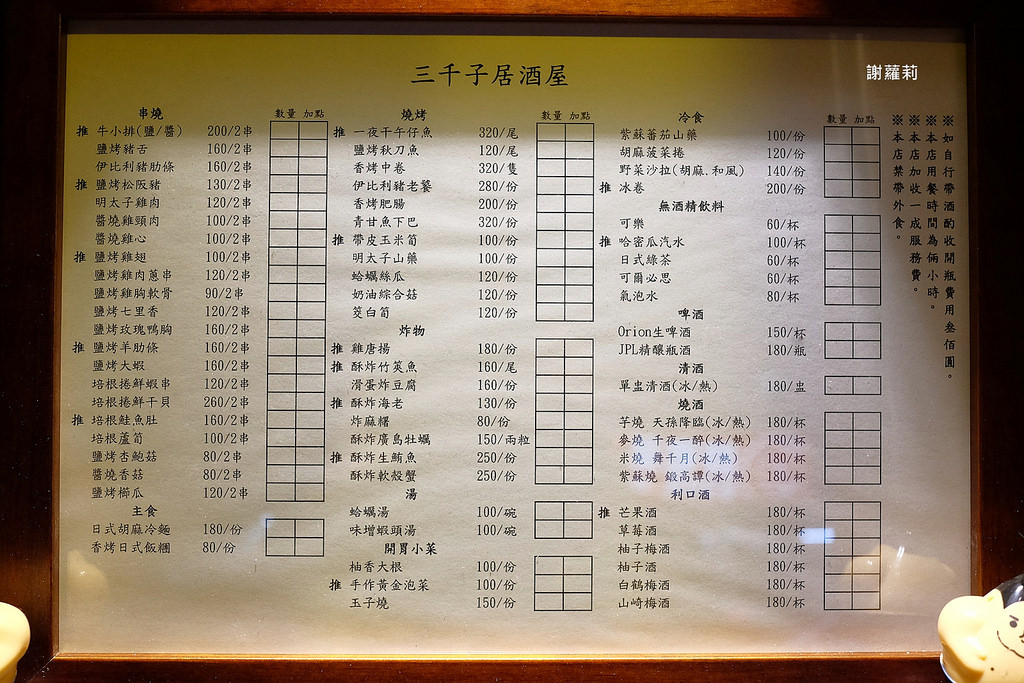 三千子居酒屋
謝蘿莉
串燒 數量 加點
推 牛小排(鹽/醬) 200/2串
鹽烤豬舌 160/2串
伊比利豬肋條 160/2串
推 鹽烤松阪豬 130/2串
明太子雞肉 120/2串
醬燒雞頸肉 100/2串
醬燒雞心 100/2串
推 鹽烤雞翅 100/2串
鹽烤雞肉蔥串 120/2串
鹽烤雞胸軟骨 90/2串
鹽烤七里香 120/2串
鹽烤玫瑰鴨胸 160/2串
推 鹽烤羊肋條 160/2串
鹽烤大蝦 160/2串
培根捲鮮蝦串 120/2串
培根捲鮮干貝 260/2串
推 培根鮭魚肚 160/2串
培根蘆筍 100/2串
鹽烤杏鮑菇 80/2串
醬燒香菇 80/2串
鹽烤櫛瓜 120/2串
主食
日式胡麻冷麵 180/份
香烤日式飯糰 80/份
燒烤 數量 加點
推 一夜干午仔魚 320/尾
鹽烤秋刀魚 120/尾
香烤中卷 320/隻
伊比利豬老饕 280/份
香烤肥腸 200/份
青甘魚下巴 320/份
推 帶皮玉米筍 100/份
明太子山藥 100/份
蛤蠣絲瓜 120/份
奶油綜合菇 120/份
筊白筍 120/份
炸物
推 雞唐揚 180/份
推 酥炸竹筴魚 160/尾
滑蛋炸豆腐 160/份
推 酥炸海老 130/份
炸麻糬 80/份
酥炸廣島牡蠣 150/兩粒
推 酥炸生鮪魚 250/份
酥炸軟殼蟹 250/份
湯
蛤蠣湯 100/碗
味增蝦頭湯 100/碗
開胃小菜
柚香大根 100/份
推 手作黃金泡菜 100/份
玉子燒 150/份
冷食 數量 加點
紫蘇蕃茄山藥 100/份
胡麻菠菜捲 120/份
野菜沙拉(胡麻.和風) 140/份
推 冰卷 200/份
無酒精飲料
可樂 60/杯
推 哈密瓜汽水 100/杯
日式綠茶 60/杯
可爾必思 60/杯
氣泡水 80/杯
啤酒
Orion生啤酒 150/杯
JPL精釀瓶酒 180/瓶
清酒
單盅清酒(冰/熱) 180/盅
燒酒
芋燒 天孫降臨(冰/熱) 180/杯
麥燒 千夜一醉(冰/熱) 180/杯
米燒 舞千月(冰/熱) 180/杯
紫蘇燒 鍛高譚(冰/熱) 180/杯
利口酒
推 芒果酒 180/杯
草莓酒 180/杯
柚子梅酒 180/杯
柚子酒 180/杯
白鶴梅酒 180/杯
山崎梅酒 180/杯
※如自行帶酒酌收開瓶費用叁佰圓。
※本店用餐時間為倆小時。
※本店加收一成服務費。
※本店禁帶外食。